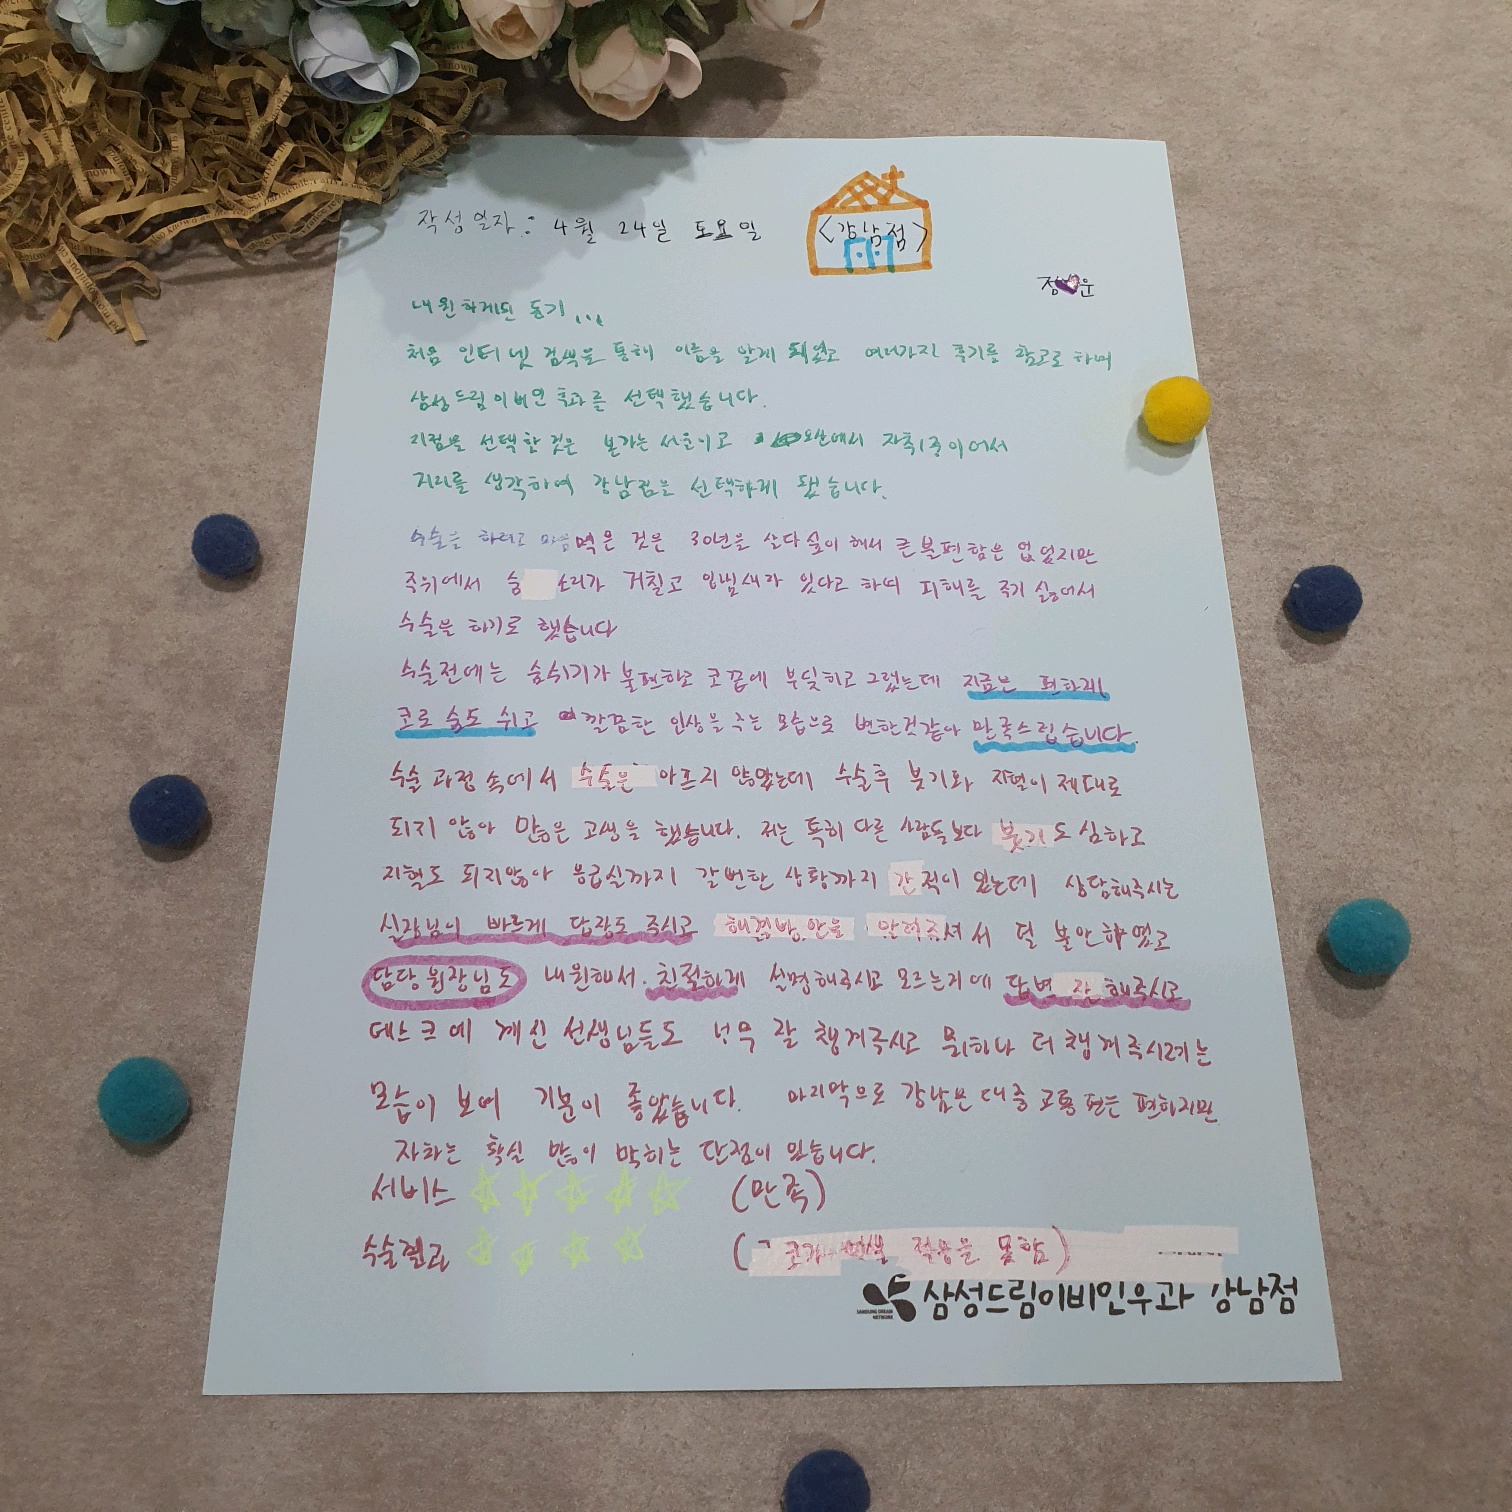 작성일자: 4월 24일 토요일
<강남점>
정 운
내원하게된 동기...
처음 인터넷 검색을 통해 이름을 알게 되었고 여러가지 후기를 참고로 하며
삼성드림이비인후과를 선택했습니다.
지점을 선택한 것은 본가는 서울이고 오산에서 자취중이어서
거리를 생각하여 강남점을 선택하게 됐습니다.
수술을 하려고 마음먹은 것은 30년을 살다싶이 해서 큰 불편함은 없었지만
주위에서 숨 소리가 거칠고 입냄새가 있다고 하며 피해를 주기 싫어서
수술을 하기로 했습니다
수술전에는 숨쉬기가 불편하고 코끝에 부딪히고 그랬는데 지금은 편하게
코로 숨도 쉬고 깔끔한 인상을 주는 모습으로 변한것같아 만족스럽습니다.
수술 과정 속에서 수술은 아프지 않았는데 수술후 붓기와 지혈이 제대로
되지 않아 많은 고생을 했습니다. 저는 특히 다른 사람들보다 붓기도 심하고
지혈도 되지않아 응급실까지 갈뻔한 상황까지 간적이 있는데 상담해주시는
실장님이 빠르게 답장도 주시고 해결방안을 알려주셔서 덜 불안하였고
담당 원장님도 내원해서 친절하게 설명해주시고 모르는거에 답변 잘 해주시고
데스크에 계신 선생님들도 너무 잘 챙겨주시고 뭐하나 더 챙겨주시려는
모습이 보여 기분이 좋았습니다. 마지막으로 강남은 대중교통 편은 편하지만
자차는 확실 많이 막히는 단점이 있습니다.
서비스 ☆☆☆☆☆ (만족)
수술결과 ☆☆☆☆ ( 코가 적응을 못함)
SAMSUNG DREAM NETWORK
삼성드림이비인후과 강남점